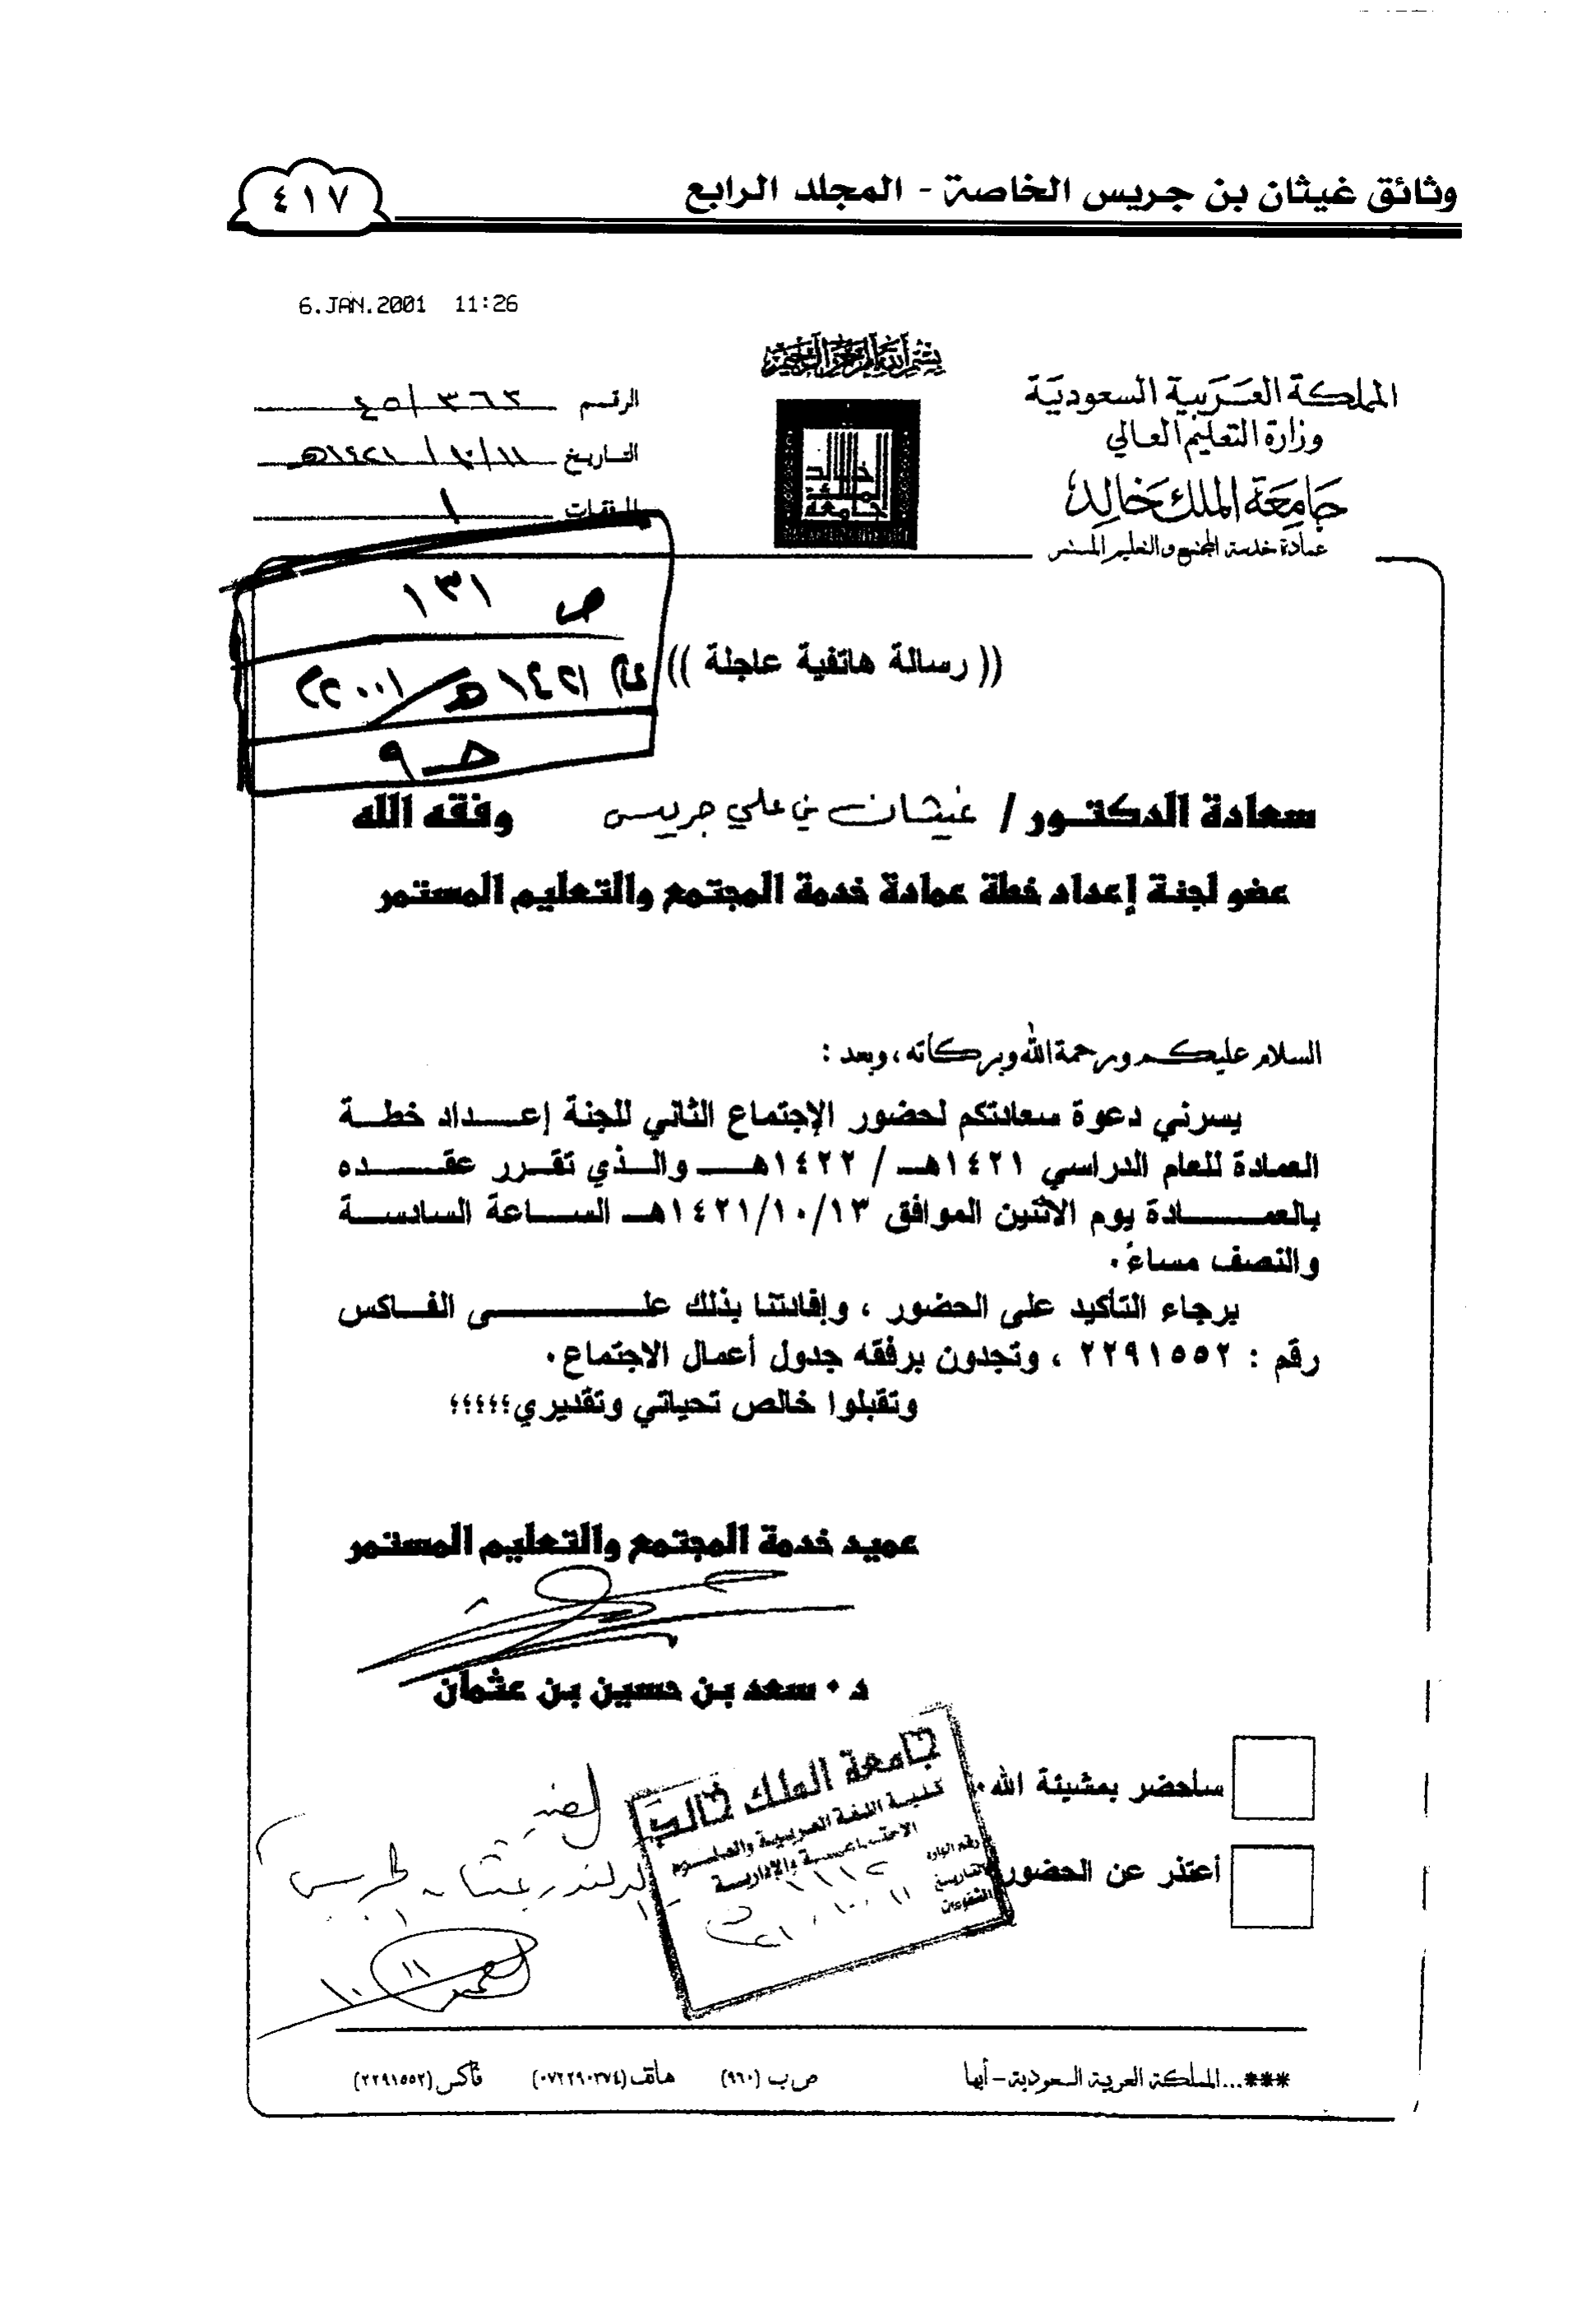 وثائق غيثان بن جريس الخاصة - المجلد الرابع
٤١٧
6.JAN.2001 11:26
بسم الله الرحمن الرحيم
المملكة العربية السعودية
وزارة التعليم العالي
جامعة الملك خالد
عمادة خدمة المجتمع والتعليم المستمر
جامعة الملك خالد
الرقم ٤٥/٣٦٢
التاريخ ١٤٢١/١٠/١١هـ
المرفقات ١
ص ١٣١
١٤٢١هـ/٢٠٠١م
حـ ٩
(( رسالة هاتفية عاجلة ))
سعادة الدكتور / غيثان بن علي جريس وفقه الله
عضو لجنة إعداد خطة عمادة خدمة المجتمع والتعليم المستمر
السلام عليكم ورحمة الله وبركاته ، وبعد :
يسرني دعوة سعادتكم لحضور الإجتماع الثاني للجنة إعـــداد خطـــة
العمادة للعام الدراسي ١٤٢١هـ / ١٤٢٢هـــ والــذي تقــرر عقـــده
بالعمـــــادة يوم الاثنين الموافق ١٤٢١/١٠/١٣هـ الســاعة السادســة
والنصف مساءً.
برجاء التأكيد على الحضور ، وإفادتنا بذلك علـــــــى الفــاكس
رقم : ٢٢٩١٥٥٢ ، وتجدون برفقه جدول أعمال الاجتماع.
وتقبلوا خالص تحياتي وتقديري؛؛؛؛؛
عميد خدمة المجتمع والتعليم المستمر
د. سعد بن حسين بن عثمان
ساحضر بمشيئة الله.
أعتذر عن الحضور
جامعة الملك خالد
كلية اللغة العربية والعلوم
الاجتماعية والإدارية
رقم الوارد
التاريخ
١١/١٠/
***...المملكة العربية السعودية – أبها ص ب (٩٦٠) هاتف (٠٧٢٢٩٠٣٧٤) فاكس (٢٢٩١٥٥٢)